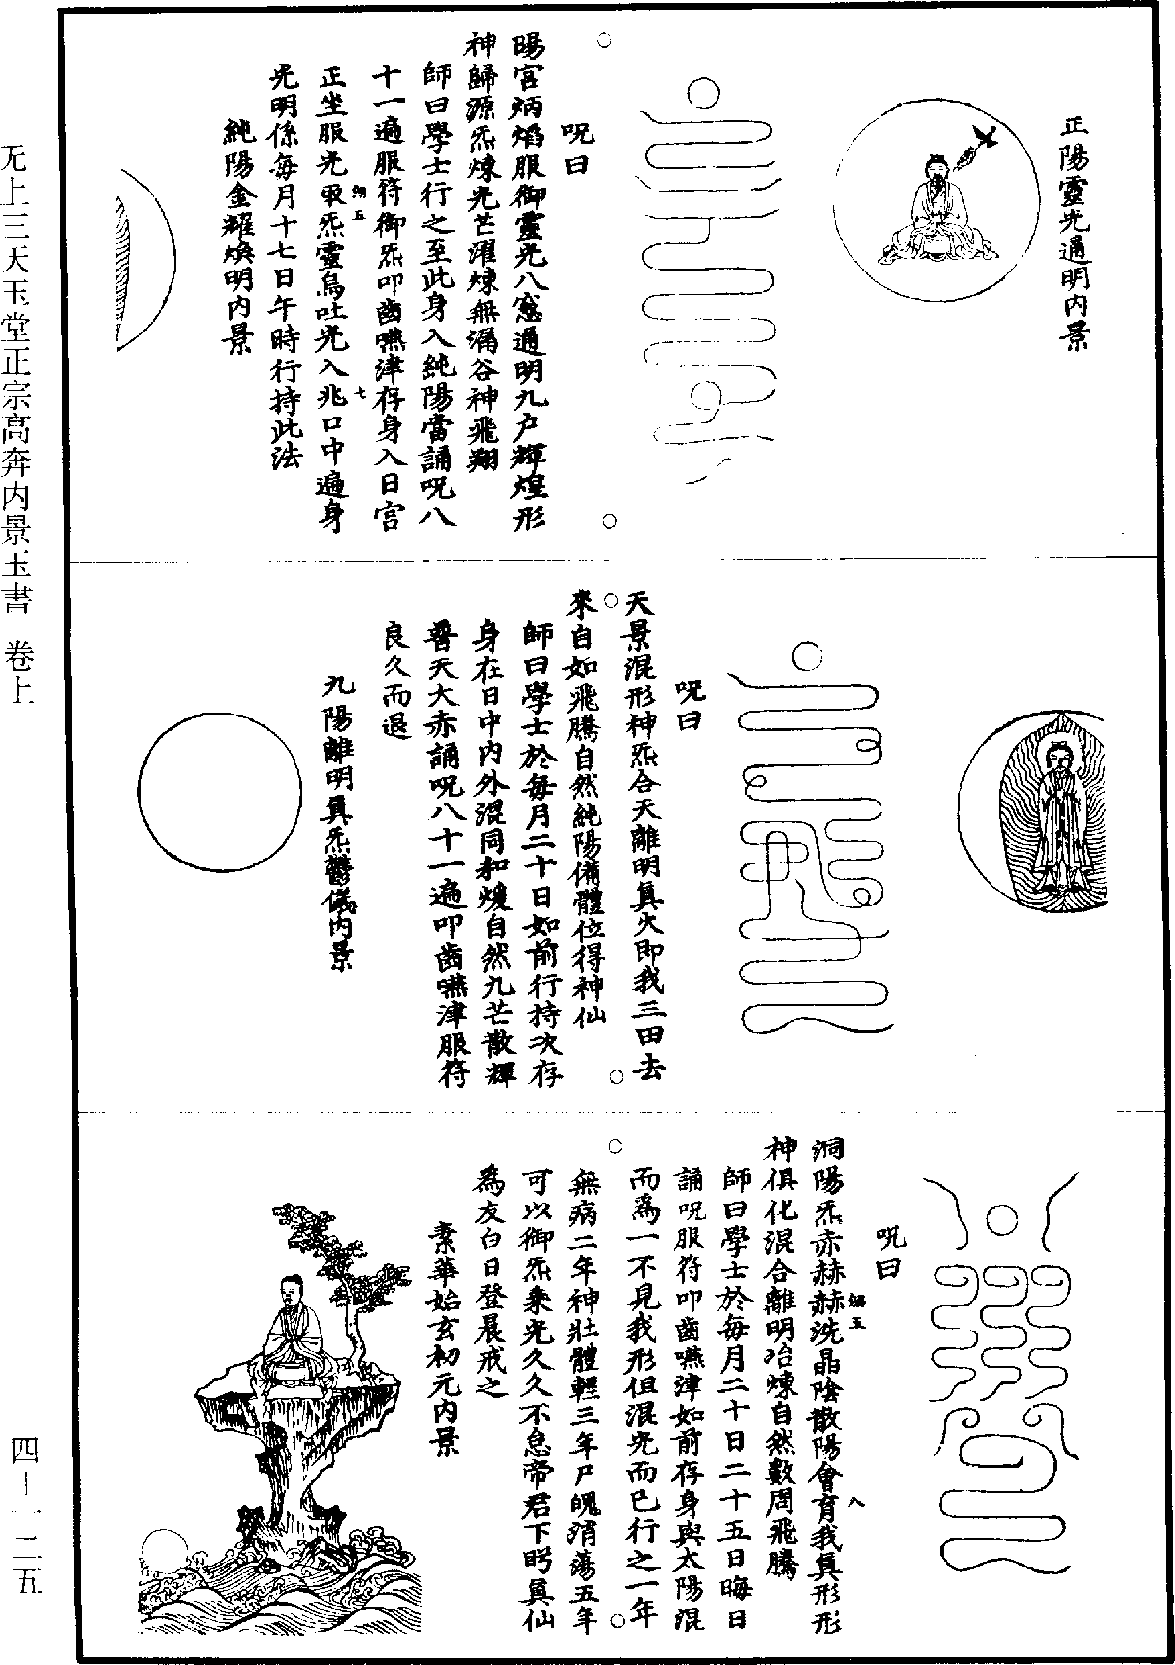 正陽靈光通明內景
呪曰
陽宮炳焰服御靈光八窻通明九户輝煌形
神歸源炁煉光芒濯煉無漏谷神飛翔
師曰學士行之至此身入純陽當誦呪八
十一遍服符御炁叩齒嚥津存身入日宮
正坐服光取炁靈烏吐光入兆口中遍身
光明係每月十七日午時行持此法
純陽金耀煥明內景
五
七
呪曰
天景混形神炁合天離明真火即我三田去
來自如飛騰自然純陽備體位得神仙
師曰學士於每月二十日如前行持次存
身在日中內外混同和煖自然九芒散輝
普天大赤誦呪八十一遍叩齒嚥津服符
良久而退
九陽離明真炁鬱儀內景
呪曰
洞陽炁赤赫赫洗晶陰散陽會育我真形形
神俱化混合離明冶煉自然數周飛騰
五
八
師曰學士於每月二十日二十五日晦日
誦呪服符叩齒嚥津如前存身與太陽混
而爲一不見我形但混光而已行之一年
無病二年神壯體輕三年尸魄消蕩五年
可以御炁乘光久久不怠帝君下眄真仙
爲友白日登晨戒之
素華始玄初元內景
无上三天玉堂正宗高奔内景玉書 卷上
四-一二五